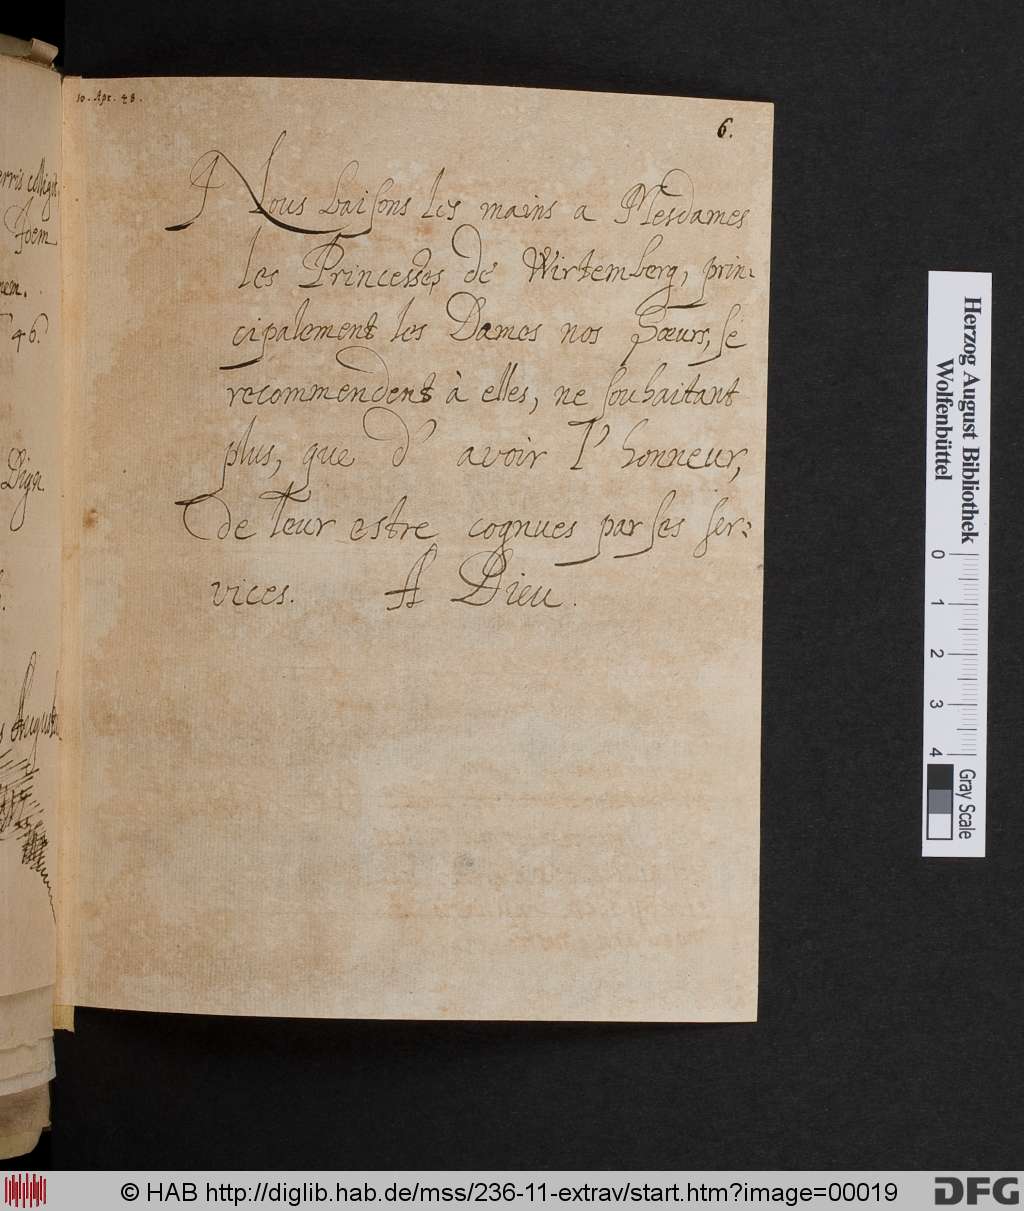 10. Apr. 48.
6.
Nous baisons les mains a Mesdames
les Princesses de Wirtemberg, prin-
cipalement les Dames nos Sœurs, se
recommendent à elles, ne souhaitant
plus, que d' avoir l' honneur,
de leur estre cognues par ses ser-
vices. A Dieu.
46.
Herzog August Bibliothek
Wolfenbüttel
0 1 2 3 4
Gray Scale
© HAB http://diglib.hab.de/mss/236-11-extrav/start.htm?image=00019
DFG